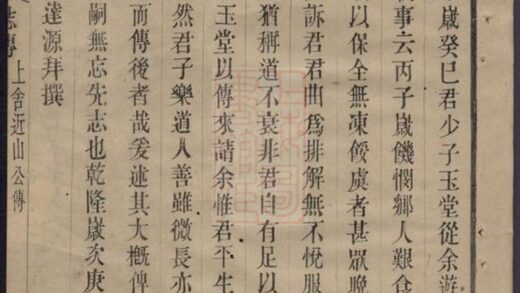 歲癸巳君少子玉堂從余游
事云丙子歲饑憫鄉人艱食
以保全無凍餒虞者甚眾晚
訴君君曲為排解無不悅服
猶稱道不衰非君自有足以
玉堂以傳來請余惟君平生
然君子樂道人善雖微長亦
而傳後者哉爰述其大概俾
嗣無忘先志也乾隆歲次庚
達源拜撰
上舍近山公傳